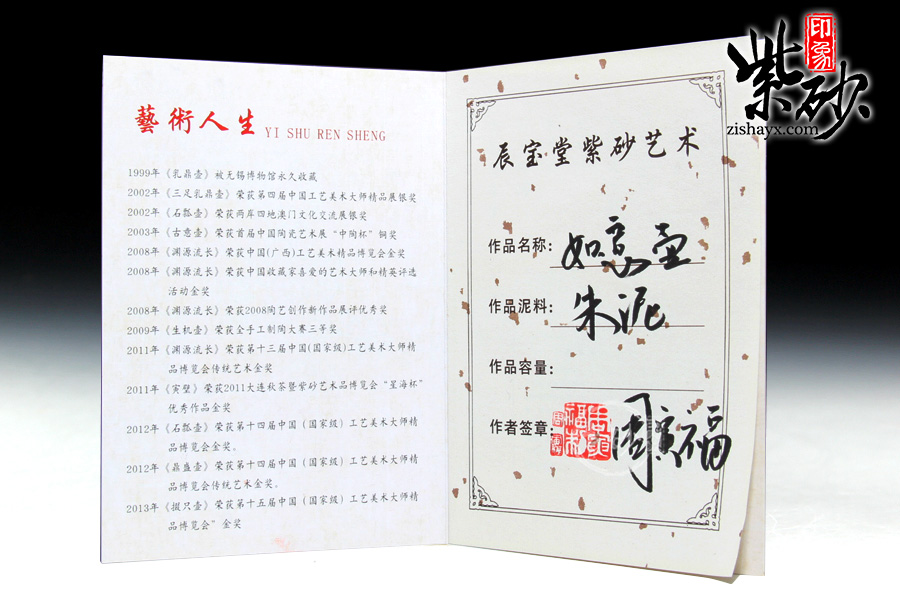 藝術人生 YI SHU REN SHENG
1999年《乳鼎壶》被无锡博物馆永久收藏
2002年《三足乳鼎壶》荣获第四届中国工艺美术大师精品展银奖
2002年《石瓢壶》荣获两岸四地澳门文化交流展银奖
2003年《古意壶》荣获首届中国陶瓷艺术展“中陶杯”铜奖
2008年《渊源流长》荣获中国(广西)工艺美术精品博览会金奖
2008年《渊源流长》荣获中国收藏家喜爱的艺术大师和精英评选
活动金奖
2008年《渊源流长》荣获2008陶艺创作新作品展评优秀奖
2009年《生机壶》荣获全手工制陶大赛三等奖
2011年《渊源流长》荣获第十三届中国(国家级)工艺美术大师精
品博览会传统艺术金奖
2011年《寅壁》荣获2011大连秋茶暨紫砂艺术品博览会“星海杯”
优秀作品金奖
2012年《石瓢壶》荣获第十四届中国（国家级）工艺美术大师精
品博览会金奖。
2012年《鼎盛壶》荣获第十四届中国（国家级）工艺美术大师精
品博览会传统艺术金奖。
2013年《掇只壶》荣获第十五届中国（国家级）工艺美术大师精
品博览会”金奖
辰宝堂紫砂艺术
作品名称：如意壶
作品泥料：朱泥
作品容量：
作者签章：周寅福
紫砂印象
zishayx.com